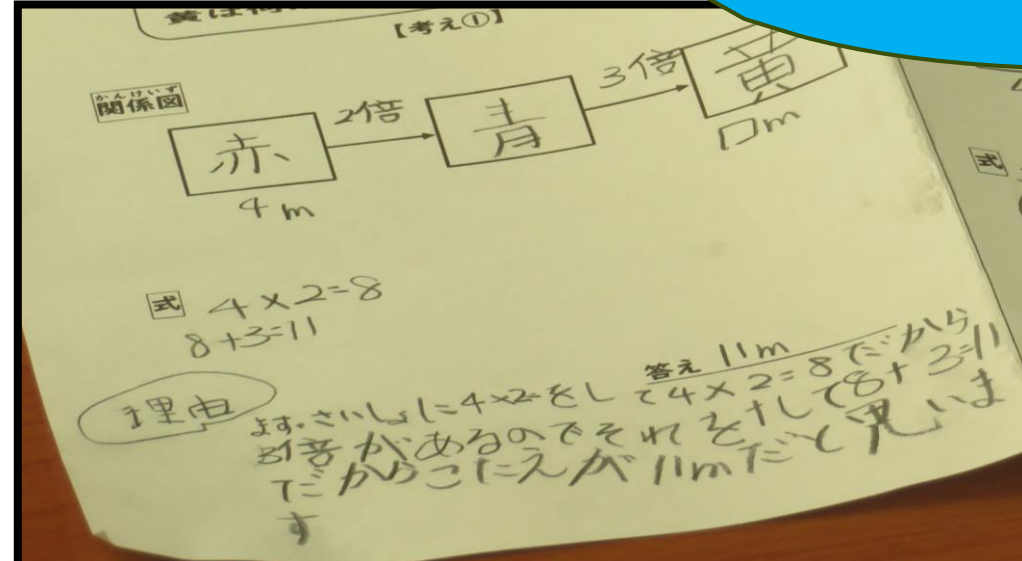 黄は何
【考え①】
かんけいず
関係図
赤 2倍 青 3倍 黄
4m □m
式 4×2=8
8+3=11
答え 11m
理由
まず、さいしょに4×2をして4×2=8だから
3倍があるのでそれを+して8+3=11
だからこたえが11mだと思いま
す
式